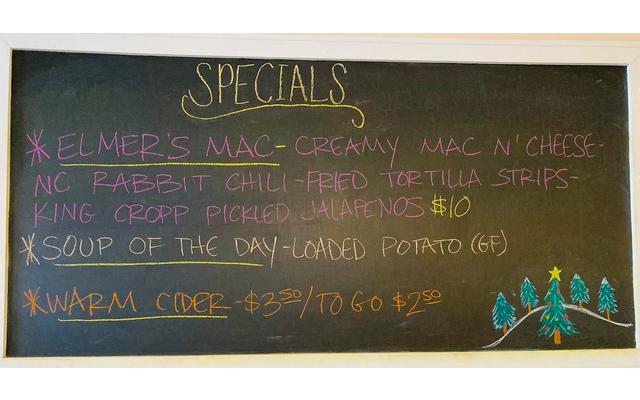 SPECIALS
* ELMER'S MAC - CREAMY MAC N' CHEESE-
NC RABBIT CHILI - FRIED TORTILLA STRIPS-
KING CROPP PICKLED JALAPENOS $10
* SOUP OF THE DAY - LOADED POTATO (GF)
* WARM CIDER - $3.50 / TO GO $2.50